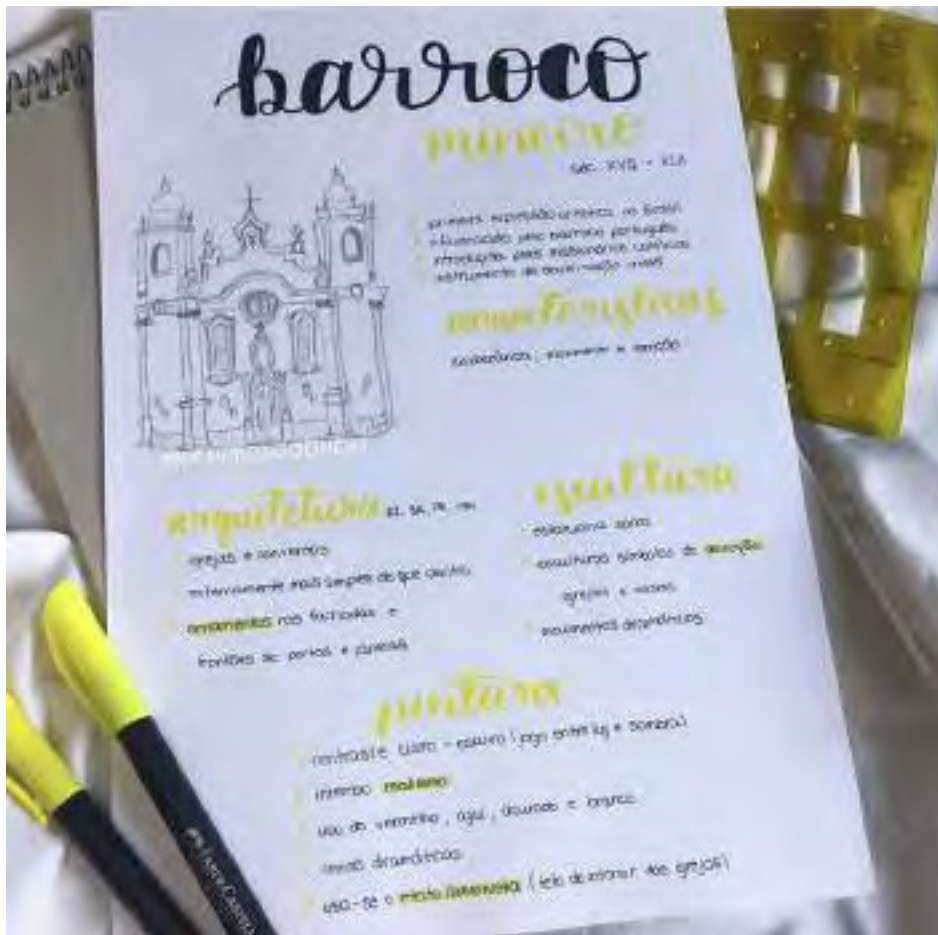 barroco
mineiro
séc. XVII - XIX
primeira expressão artística no Brasil
influenciado pelo barroco português
introduções pelos missionários católicos
instrumento de doutrinação cristã
características
exuberância, movimento e emoção
arquitetura
igrejas e conventos
externamente mais simples do que dentro
ornamentos nas fachadas e
frontões de portas e janelas
escultura
estatuária sacra
esculturas símbolos de devoção
igrejas e museus
movimentos dramáticos
pintura
contraste claro - escuro (jogo entre luz e sombra)
intenso realismo
uso do vermelho, azul, dourado e branco
cenas dramáticas
usa-se o (teto do interior das igrejas)